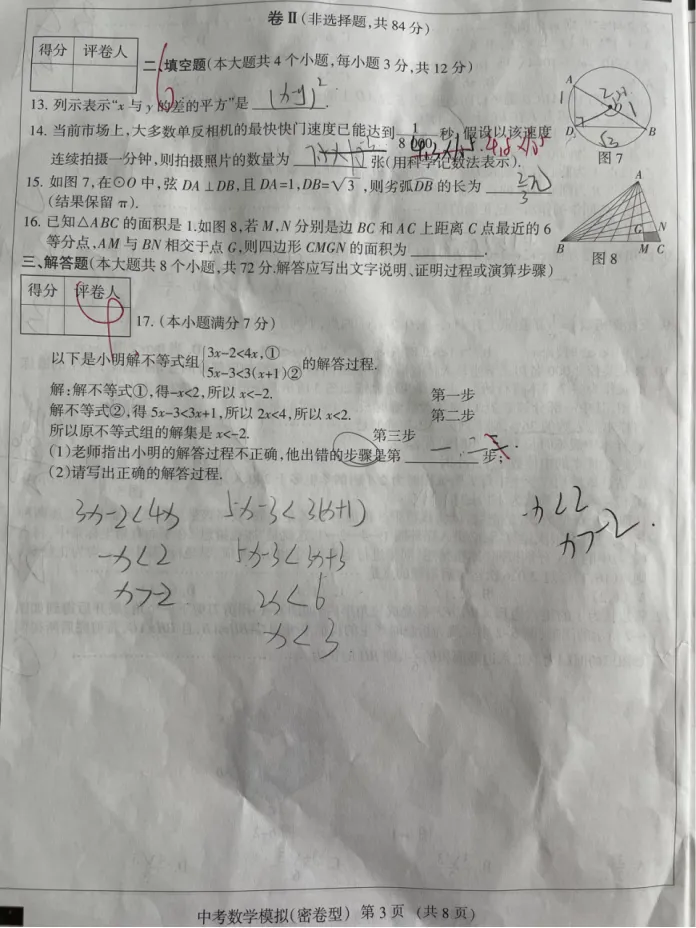 卷Ⅱ(非选择题,共84分)
得分 评卷人
二、填空题(本大题共4个小题,每小题3分,共12分)
13. 列示表示“x与y的差的平方”是 (x-y)².
14. 当前市场上,大多数单反相机的最快快门速度已能达到1/8 000秒,假设以该速度
连续拍摄一分钟,则拍摄照片的数量为 张(用科学记数法表示). 4.8×10⁵
15. 如图7,在⊙O中,弦DA⊥DB,且DA=1,DB=√3,则劣弧DB的长为 2π/3
(结果保留π).
A
1
D
B
√3
图7
16. 已知△ABC的面积是1.如图8,若M,N分别是边BC和AC上距离C点最近的6
等分点,AM与BN相交于点G,则四边形CMGN的面积为 .
A
G N
B M C
图8
三、解答题(本大题共8个小题,共72分.解答应写出文字说明、证明过程或演算步骤)
得分 评卷人
17. (本小题满分7分)
以下是小明解不等式组{3x-2<4x,① 5x-3<3(x+1)②的解答过程.
解:解不等式①,得-x<2,所以x<-2. 第一步
解不等式②,得5x-3<3x+1,所以2x<4,所以x<2. 第二步
所以原不等式组的解集是x<-2. 第三步
(1)老师指出小明的解答过程不正确,他出错的步骤是第 一.二 步;
(2)请写出正确的解答过程.
3x-2<4x 5x-3<3(x+1) -x<2
-x<2 5x-3<3x+3 x>-2.
x>-2 2x<6
x<3
中考数学模拟(密卷型) 第3页 (共8页)